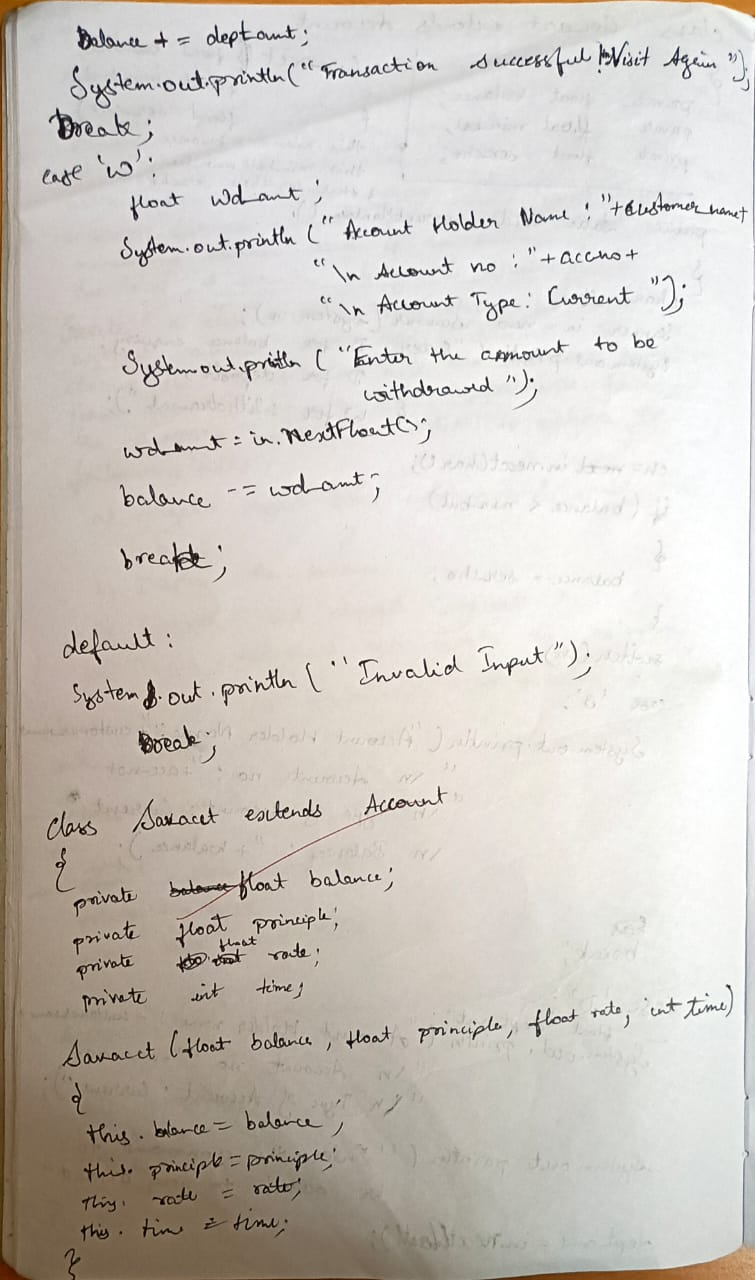 Balance + = deptamt;
System.out.println(" Transaction successful ! Visit Again ");
Break;
case 'w':
float wdamt;
System.out.println (" Account Holder Name : "+customer_name+
"\n Account no : "+accno+
"\n Account Type: Current ");
System.out.println ( "Enter the ammount to be
withdrawed ");
wdamt = in.NextFloat();
balance -= wdamt;
break;
default:
System.out.println ( "Invalid Input");
Break;
Class Savacct extends Account
{
private float balance;
private float principle;
private float rate;
private int time;
Savacct (float balance, float principle, float rate, int time)
{
this. balance = balance;
this. principle = principle;
this. rate = rate;
this. time = time;
}